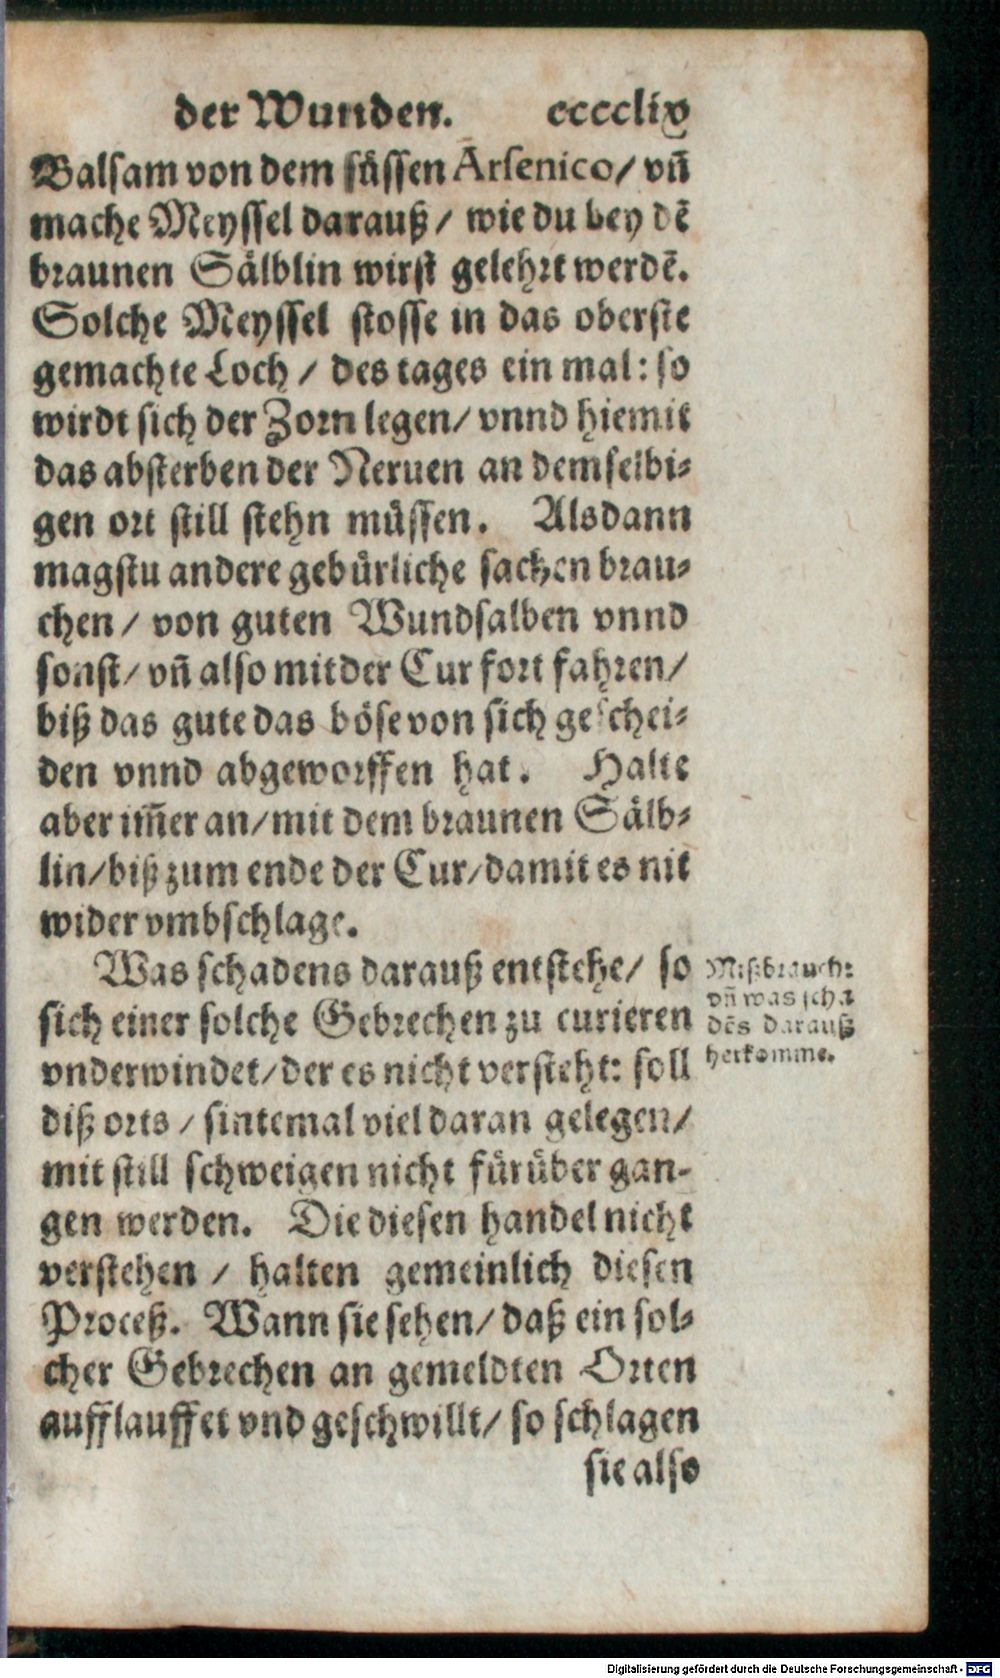 der Wunden. cccclix
Balsam von dem süssen Arsenico/ vñ
mache Meyssel darauß/ wie du bey dē
braunen Sälblin wirst gelehrt werdē.
Solche Meyssel stosse in das oberste
gemachte Loch/ des tages ein mal: so
wirdt sich der Zorn legen/ vnnd hiemit
das absterben der Neruen an demselbi-
gen ort still stehn müssen. Alsdann
magstu andere gebürliche sachen brau-
chen/ von guten Wundsalben vnnd
sonst/ vñ also mit der Cur fort fahren/
biß das gute das böse von sich geschei-
den vnnd abgeworffen hat. Halte
aber im̃er an/ mit dem braunen Sälb-
lin/ biß zum ende der Cur/ damit es nit
wider vmbschlage.
Was schadens darauß entstehe/ so
sich einer solche Gebrechen zu curieren
vnderwindet/ der es nicht versteht: soll
diß orts/ sintemal viel daran gelegen/
mit still schweigen nicht fürüber gan-
gen werden. Die diesen handel nicht
verstehen/ halten gemeinlich diesen
Proceß. Wann sie sehen/ daß ein sol-
cher Gebrechen an gemeldten Orten
aufflauffet vnd geschwillt/ so schlagen
sie also
Mißbrauch:
vñ was scha
dēs darauß
herkomme.
Digitalisierung gefördert durch die Deutsche Forschungsgemeinschaft - DFG